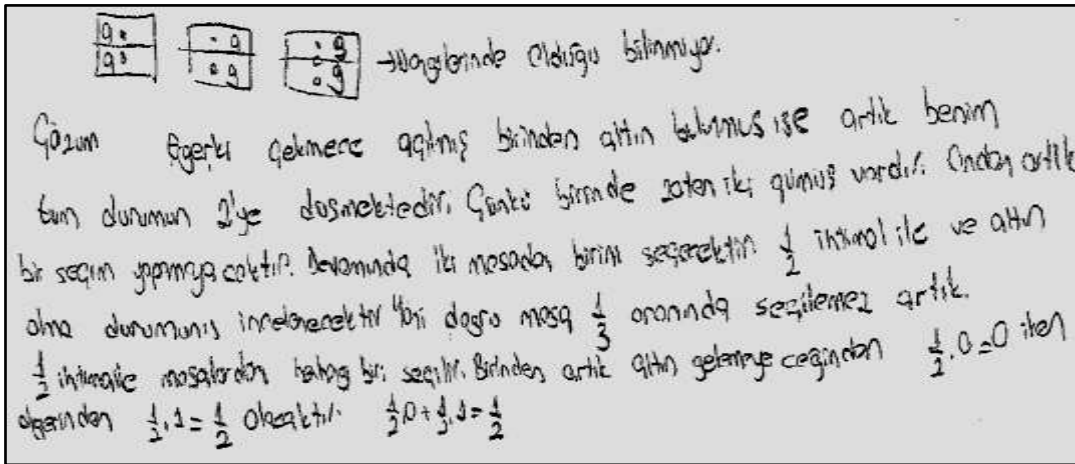 g . . g . g → Hangilerinde olduğu bilinmiyor.
g . . g . g
Çözüm Eğerki çekmece açılmış birinden altın bulunmuş ise artık benim
tüm durumun 2'ye düşmektedir. Çünkü birinde zaten iki gümüş vardır. Ondan artık
bir seçim yapmayacaktır. Devamında iki masadan birini seçecektir. 1/2 ihtimal ile ve altın
olma durumunu incelenecektir Yani doğru masa 1/3 oranında seçilemez artık.
1/2 ihtimalle masalardan bir seçilir. Birinden artık altın gelemeyeceğinden 1/2 . 0 = 0 iken
diğerinden 1/2 . 1 = 1/2 olacaktır. 1/2 . 0 + 1/2 . 1 = 1/2